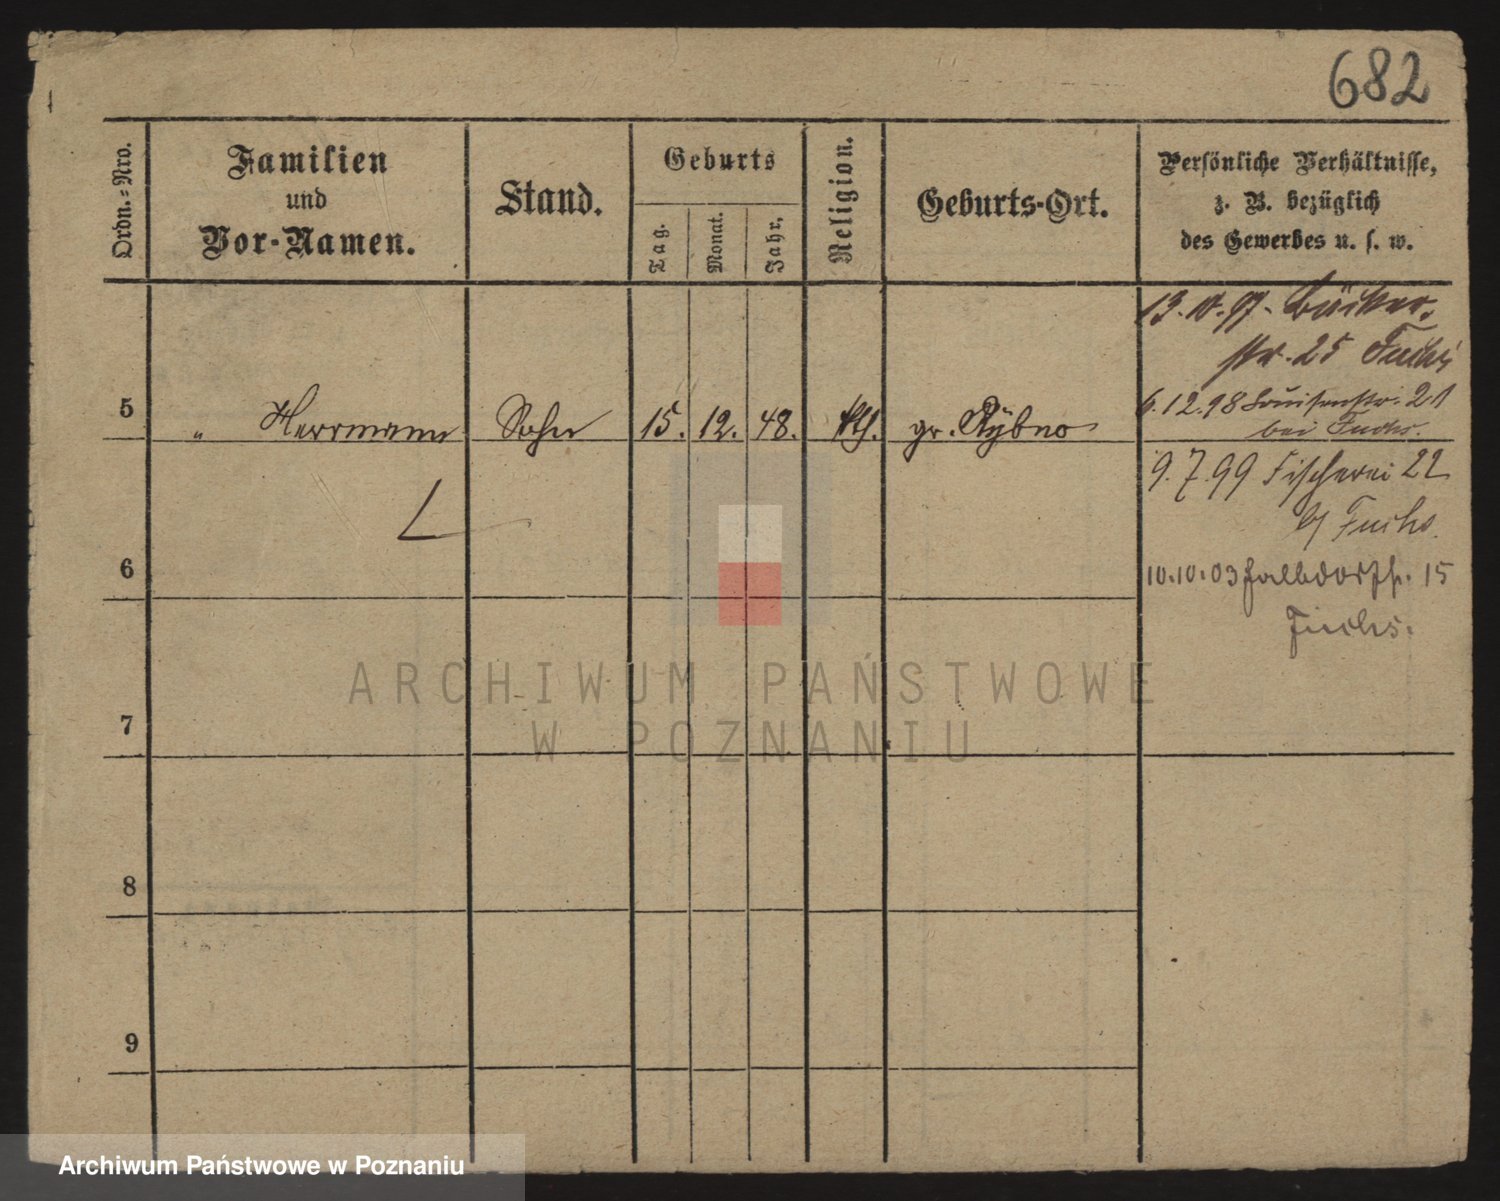 682
Ordn.-Nro.
Familien
und
Vor-Namen.
Stand.
Geburts
Tag.
Monat.
Jahr.
Religion.
Geburts-Ort.
Persönliche Verhältnisse,
z. B. bezüglich
des Gewerbes u. s. w.
13.10.97. Bäcker-
str. 25 Fuchs
6.12.98 Louisenstr. 21
bei Fuchs.
5 " Herrmann Sohn 15. 12. 48. kth. gr. Rybno
9.7.99 Fischerei 22
b/ Fuchs.
6
10.10.03 Halbdorfstr. 15
Fuchs.
7
8
9
ARCHIWUM PAŃSTWOWE
W POZNANIU
Archiwum Państwowe w Poznaniu